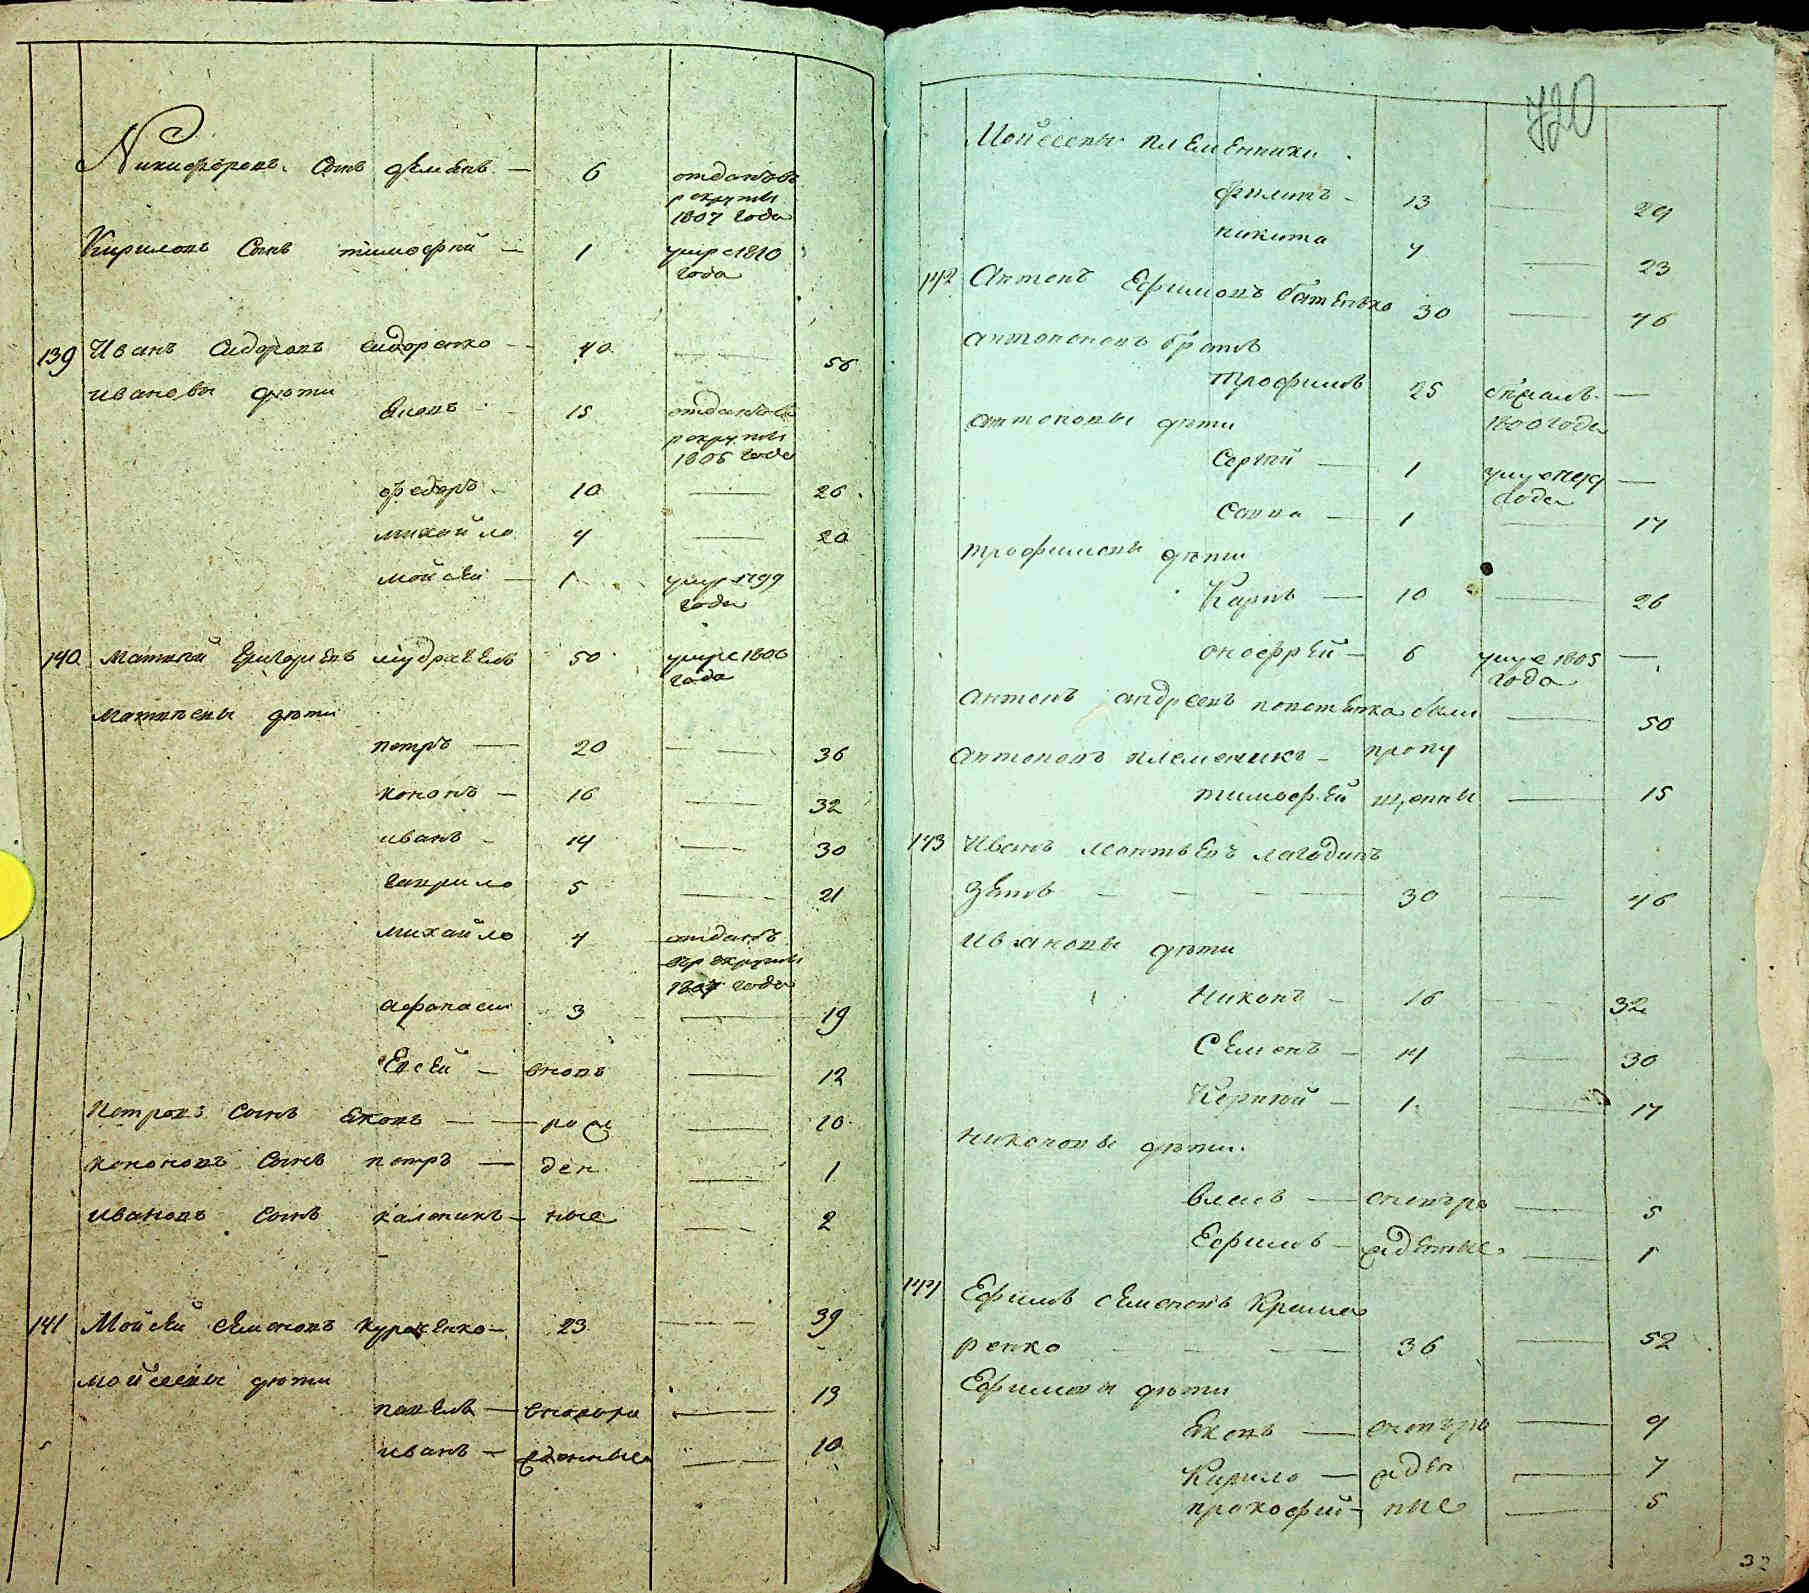 Никифоровъ Сынъ демянъ — 6 отданъ въ
рекруты
1807 года
Кириловъ Сынъ тимофей — 1 умре 1810
года
139 Иванъ Сидоровъ Сидоренко — 40 — — 56
ивановы дѣти
Яковъ — 15 отданъ въ
рекруты
1806 года
федоръ — 10 — 26
михайло 4 — 20
мойсей — 1 умре 1799
года
140 матвей Григориевъ мудрагель 50 умре 1806
года
матвѣевы дѣти
петръ — 20 — — 36
кононъ — 16 — 32
иванъ — 14 — 30
гаврило 5 — 21
михайло 4 отданъ
въ рекруты
1807 года
афонасий 3 — 19
Евсей — вновь — 12
Петровъ Сынъ Яковъ — — рож — 10
кононовъ Сынъ петръ — ден — 1
ивановъ Сынъ каленикъ — ные — 2
141 Мойсей семеновъ Курченко — 23 — — — 39
мойсеевы дѣти
павелъ — вновьро — 13
иванъ — жденные — 10
420
Мойсеевы племенники
филипъ — 13 — 29
никита 7 — 23
142 Антонъ Ефимовъ батенко 30 — 46
антононовъ братъ
трофимъ 25 бежалъ —
1800 года
антоновы дѣти
Сергей — 1 умре 1799 —
года
Савва — 1 — 17
трофимовы дѣти
Карпъ — 10 — 26
онофрей — 6 умре 1805 —
года
антонъ андреевъ попотенко были — 50
антоновъ племеникъ — пропу
тимофей щенны — 15
143 Иванъ леонтьевъ лагодинъ
зять — — — 30 — 46
ивановы дѣти
Никонъ — 16 — 32
Семенъ — 14 — 30
Корней — 1 — 17
никоновы дѣти
власъ — вновьро — 5
Ефимъ — жденные — 1
144 Ефимъ семеновъ Крама
ренко — — — 36 — 52
Ефимовы дѣти
Яковъ — вновьро — 9
Кирило — жден — 7
прокофий — ные — 5
32